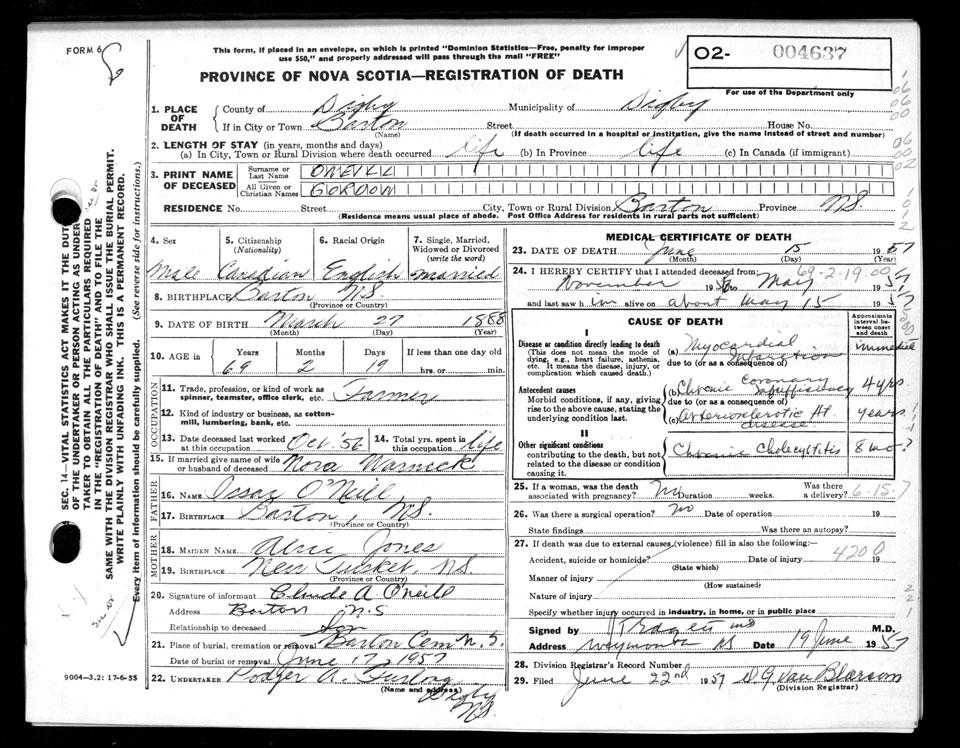 FORM 6
This form, if placed in an envelope, on which is printed "Dominion Statistics—Free, penalty for improper
use $50," and properly addressed will pass through the mail "FREE"
PROVINCE OF NOVA SCOTIA—REGISTRATION OF DEATH
02- 004637
For use of the Department only
1. PLACE OF DEATH
County of Digby Municipality of Digby
If in City or Town Barton Street House No.
(Name) (If death occurred in a hospital or institution, give the name instead of street and number)
2. LENGTH OF STAY (in years, months and days)
(a) In City, Town or Rural Division where death occurred life (b) In Province life (c) In Canada (if immigrant)
3. PRINT NAME OF DECEASED
Surname or Last Name ONEILL
All Given or Christian Names GORDON
RESIDENCE No. Street City, Town or Rural Division Barton Province N.S.
(Residence means usual place of abode. Post Office Address for residents in rural parts not sufficient)
4. Sex
Male
5. Citizenship
(Nationality)
Canadian
6. Racial Origin
English
7. Single, Married,
Widowed or Divorced
(write the word)
married
8. BIRTHPLACE Barton N.S.
(Province or Country)
9. DATE OF BIRTH March 27 1888
(Month) (Day) (Year)
10. AGE in Years Months Days If less than one day old
69 2 19 hrs. or min.
OCCUPATION
11. Trade, profession, or kind of work as
spinner, teamster, office clerk, etc. Farmer
12. Kind of industry or business, as cotton-
mill, lumbering, bank, etc.
13. Date deceased last worked
at this occupation Oct. '56
14. Total yrs. spent in
this occupation life
15. If married give name of wife
or husband of deceased Nora Warnick
FATHER
16. NAME O'Neill
17. BIRTHPLACE Barton, N.S.
(Province or Country)
MOTHER
18. MAIDEN NAME Jones
19. BIRTHPLACE New Tusket, NS
(Province or Country)
20. Signature of informant Claude A O'neill
Address Barton N.S
Relationship to deceased Son
21. Place of burial, cremation or removal Barton Cem N.S.
Date of burial or removal June 17 1957
22. UNDERTAKER A.
(Name and address) Digby
NS.
9004-3.2: 17-6-55
MEDICAL CERTIFICATE OF DEATH
23. DATE OF DEATH June 15 1957
(Month) (Day) (Year)
24. I HEREBY CERTIFY that I attended deceased from:
69-2-19.00
November 1956 to May 1957
and last saw him alive on about may 15 1957
CAUSE OF DEATH
Approximate
interval be-
tween onset
and death
I
Disease or condition directly leading to death
(This does not mean the mode of
dying, e.g., heart failure, asthenia,
etc. It means the disease, injury, or
complication which caused death.)
(a) Myocardial infarction
due to (or as a consequence of)
Antecedent causes
Morbid conditions, if any, giving
rise to the above cause, stating the
underlying condition last.
(b) Chronic coronary insufficiency 4 yrs.
due to (or as a consequence of)
(c) arteriosclerotic Ht. disease years
II
Other significant conditions
contributing to the death, but not
related to the disease or condition
causing it.
Chronic Cholecystitis 8 mo?
25. If a woman, was the death
associated with pregnancy? No Duration weeks. Was there
a delivery? 6-15-7
26. Was there a surgical operation? no Date of operation 19
State findings Was there an autopsy?
27. If death was due to external causes (violence) fill in also the following:—
Accident, suicide or homicide? Date of injury 19
4200
(State which)
Manner of injury
(How sustained)
Nature of injury
Specify whether injury occurred in industry, in home, or in public place
Signed by M.D.
Address Weymouth NS Date 19 June 1957
28. Division Registrar's Record Number
29. Filed June 22nd 1957 D.G. Van Blarcom
(Division Registrar)
SEC. 14—VITAL STATISTICS ACT MAKES IT THE DUTY
OF THE UNDERTAKER OR PERSON ACTING AS UNDER-
TAKER TO OBTAIN ALL THE PARTICULARS REQUIRED
IN THE "REGISTRATION OF DEATH" AND TO FILE THE
SAME WITH THE DIVISION REGISTRAR WHO SHALL ISSUE THE BURIAL PERMIT.
WRITE PLAINLY WITH UNFADING INK. THIS IS A PERMANENT RECORD.
Every item of information should be carefully supplied. (See reverse side for instructions.)